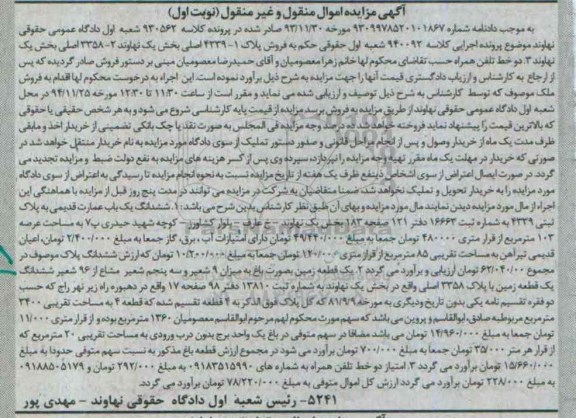 آگهی مزایده اموال منقول و غیر منقول (نوبت اول)
به موجب دادنامه شماره ۹۳۰۹۹۷۸۵۲۰۱۰۱۸۶۷ مورخه ۹۳/۱۱/۳۰ صادر شده در پرونده کلاسه ۹۳۰۵۶۲ شعبه اول دادگاه عمومی حقوقی
نهاوند موضوع پرونده اجرایی کلاسه ۹۴۰۰۹۲ شعبه اول حقوقی حکم به فروش پلاک ۱-۴۳۳۹ اصلی بخش یک نهاوند ۲-۳۳۵۸ اصلی بخش یک
نهاوند ۳- دو خط تلفن همراه حسب تقاضای محکوم لها خانم زهرا معصومیان و آقای حمیدرضا معصومیان مبنی بر دستور فروش صادر گردیده که پس
از ارجاع به کارشناس و ارزیاب دادگستری قیمت آنها را جهت مزایده به شرح ذیل برآورد نموده است. این اجراء به درخواست محکوم لها اقدام به فروش
ملک موصوف که توسط کارشناس به شرح ذیل توصیف و ارزیابی شده می نماید و مقرر است از ساعت ۱۱/۳۰ تا ۱۲/۳۰ مورخه ۹۴/۱۱/۲۵ در محل
شعبه اول دادگاه عمومی حقوقی نهاوند از طریق مزایده به فروش برسد مزایده از قیمت پایه کارشناسی شروع می شود و به هر شخص حقیقی یا حقوقی
که بالاترین قیمت را پیشنهاد نماید فروخته خواهد شد ده درصد وجه مزایده فی المجلس به صورت نقد یا چک بانکی تضمینی از خریدار اخذ و مابقی
ظرف مدت یک ماه از خریدار وصول و پس از انجام مراحل قانونی و صدور دستور تملیک از سوی دادگاه مورد مزایده به نام خریدار منتقل خواهد شد در
صورتی که خریدار در مهلت یک ماه مقرر تهیه وجه مزایده را نپردازد سپرده وی پس از کسر هزینه های مزایده به نفع دولت ضبط و مزایده تجدید می
گردد. در صورت ایصال اعتراض از سوی اشخاص ذینفع ظرف یک هفته از تاریخ مزایده نسبت به نحوه انجام مزایده تا رسیدگی به اعتراض از سوی دادگاه
مورد مزایده را به خریدار تحویل و تملیک نخواهد شد. ضمنا متقاضیان به شرکت در مزایده می توانند در مدت پنج روز قبل از مزایده با هماهنگی این
اجراء از مال مورد مزایده دیدن نمایند مال مورد مزایده و بهای آن طبق نظر کارشناس بدین شرح می باشد: ۱. ششدانگ یک باب عمارت قدیمی به پلاک
ثبتی ۴۳۳۹ به شماره ثبت ۱۶۶۶۳ دفتر ۱۲۱ صفحه ۱۸۳ بخش یک نهاوند کوچه شهید حیدری پ۷ به مساحت عرصه
۱۰۳ مترمربع از قرار متری ۴۸۰۰۰۰ تومان جمعا به مبلغ ۴۹/۴۴۰/۰۰۰ تومان دارای امتیازات آب، برق، گاز جمعا به مبلغ ۲/۴۰۰/۰۰۰ تومان، اعیان
قدیمی تیرآهن به مساحت تقریبی ۸۵ مترمربع از قرار متری ۱۲۰/۰۰۰ تومان جمعا به مبلغ ۱۰/۲۰۰/۰۰۰ تومان که ارزش ششدانگ پلاک موصوف در
مجموع ۶۲/۰۴۰/۰۰۰ تومان ارزیابی و برآورد می گردد ۲. یک قطعه زمین بصورت باغ به میزان ۹ شعیر و سه پنجم شعیر مشاع از ۹۶ شعیر ششدانگ
یک قطعه زمین با پلاک ۳۳۵۸ اصلی واقع در بخش یک نهاوند به شماره ثبت ۱۳۸۱۰ دفتر ۹۸ صفحه ۱۷ واقع در دهبوره راه زیر نهر راج که حسب
دو فقره تقسیم نامه یکی بدون تاریخ ودیگری به مورخه ۸۱/۹/۹ که کل پلاک فوق الذکر به ۴ قطعه تقسیم شده که قطعه ۴ به مساحت تقریبی ۳۴۰۰
مترمربع مربوطبه صادق، ابوالقاسم و پروین می باشد که سهم مورث محکوم لهم مرحوم ابوالقاسم معصومیان ۱۳۶۰ مترمربع بوده و از قرار متری ۱۱/۰۰۰
تومان جمعا به مبلغ ۱۴/۹۶۰/۰۰۰ تومان می باشد مضافا در سهم متوفی در باغ یک واحد برج بدون درب ورودی به مساحت تقریبی ۲۰ مترمربع که
از قرار هر متر ۳۵/۰۰۰ تومان جمعا به مبلغ ۷۰۰/۰۰۰ تومان برآورد می شود در مجموع ارزش قطعه باغ مذکور به نسبت سهم متوفی حدودا به مبلغ
۱۵/۶۶۰/۰۰۰ تومان برآورد می گردد ۳. امتیاز دو خط تلفن همراه به شماره های ۰۹۱۸۳۵۱۵۹۹۰ به مبلغ ۲۹۲/۰۰۰ تومان و ۰۹۱۸۸۵۰۵۱۷۹
به مبلغ ۲۲۸/۰۰۰ تومان برآورد می گردد ارزش کل اموال متوفی به مبلغ ۷۸/۲۲۰/۰۰۰ تومان برآورد می گردد.
۵۲۴۱- رئیس شعبه اول دادگاه حقوقی نهاوند - مهدی پور